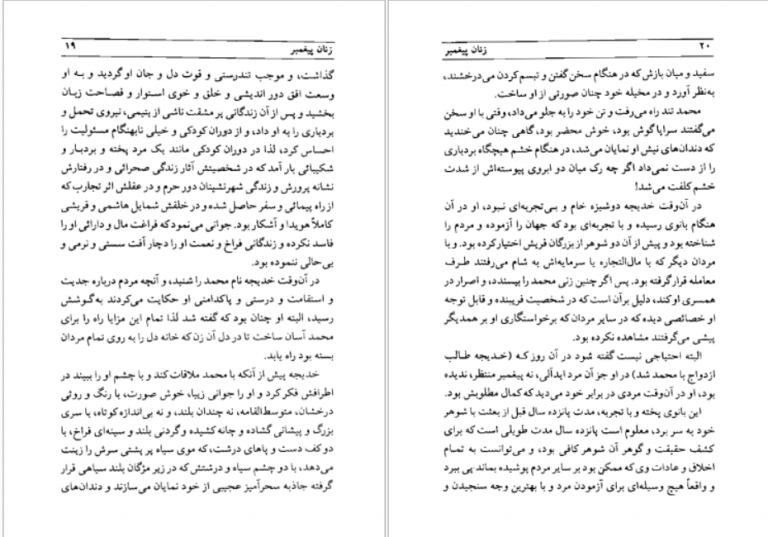 زنان پیغمبر
۱۹
گذاشت، و موجب تندرستی و قوت دل و جان او گردید و به او
وسعت افق دور اندیشی و خلق و خوی استوار و فصاحت زبان
بخشید و پس از آن زندگانی پر مشقت ناشی از یتیمی، نیروی تحمل و
بردباری را به او داد، و از دوران کودکی و خیلی نابهنگام مسئولیت را
احساس کرد، لذا در دوران کودکی مانند یک مرد پخته و بردبار و
شکیبائی بار آمد که در شخصیتش آثار زندگی صحرائی و در رفتارش
نشانه پرورش و زندگی شهرنشینان دور حرم و در عقلش اثر تجارب که
از راه پیمائی و سفر حاصل شده و در خلقش شمایل هاشمی و قریشی
کاملاً هویدا و آشکار بود. جوانی می‌نمود که فراغت مال و دارائی او را
فاسد نکرده و زندگانی فراخ و نعمت او را دچار آفت سستی و نرمی و
بی‌حالی ننموده بود.
در آن‌وقت خدیجه نام محمد را شنید، و آنچه مردم درباره جدیت
و استقامت و درستی و پاکدامنی او حکایت می‌کردند به‌گوشش
رسید، البته او چنان بود که گفته شد لذا تمام این مزایا راه را برای
محمد آسان ساخت تا در دل آن زن که خانه دل را به روی تمام مردان
بسته بود راه یابد.
خدیجه پیش از آنکه با محمد ملاقات کند و با چشم او را ببیند در
اطرافش فکر کرد و او را جوانی زیبا، خوش صورت، با رنگ و روئی
درخشان، متوسط‌القامه، نه چندان بلند، و نه بی‌اندازه کوتاه، با سری
بزرگ و پیشانی گشاده و چانه کشیده و گردنی بلند و سینه‌ای فراخ، با
دو کف دست و پاهای درشت، که موی سیاه پر پشتی سرش را زینت
می‌دهد، با دو چشم سیاه و درشتش که در زیر مژگان بلند سیاهی قرار
گرفته جاذبه سحرآمیز عجیبی از خود نمایان می‌سازند و دندان‌های
۲۰
زنان پیغمبر
سفید و میان بازش که در هنگام سخن گفتن و تبسم کردن می‌درخشند،
به‌نظر آورد و در مخیله خود چنان صورتی از او ساخت.
محمد تند راه می‌رفت و تن خود را به جلو می‌داد، وقتی با او سخن
می‌گفتند سراپا گوش بود، خوش محضر بود، گاهی چنان می‌خندید
که دندان‌های نیش او نمایان می‌شد، در هنگام خشم هیچگاه بردباری
را از دست نمی‌داد اگر چه رک میان دو ابروی پیوسته‌اش از شدت
خشم کلفت می‌شد!
در آن‌وقت خدیجه دوشیزه خام و بی‌تجربه‌ای نبود، او در آن
هنگام بانوی رسیده و با تجربه‌ای بود که جهان را آزموده و مردم را
شناخته بود و پیش از آن دو شوهر از بزرگان قریش اختیار کرده بود. و با
مردان دیگر که با مال‌التجاره یا سرمایه‌اش به شام می‌رفتند طرف
معامله قرار گرفته بود. پس اگر چنین زنی محمد را بپسندد، و اصرار در
همسری او کند، دلیل برآن است که در شخصیت فریبنده و قابل توجه
او خصائصی دیده که در سایر مردان که برخواستگاری او بر همدیگر
پیشی می‌گرفتند مشاهده نکرده بود.
البته احتیاجی نیست گفته شود در آن روز که (خدیجه طالب
ازدواج با محمد شد) در او جز آن مرد ایدآلی، نه پیغمبر منتظر، ندیده
بود، او در آن‌وقت مردی در برابر خود می‌دید که کمال مطلوبش بود.
این بانوی پخته و با تجربه، مدت پانزده سال قبل از بعثت با شوهر
خود به سر برد، معلوم است پانزده سال مدت طویلی است که برای
کشف حقیقت و گوهر آن شوهر کافی بود، و می‌توانست به تمام
اخلاق و عادات وی که ممکن بود بر سایر مردم پوشیده بماند پی ببرد
و واقعاً هیچ وسیله‌ای برای آزمودن مرد و با بهترین وجه سنجیدن و